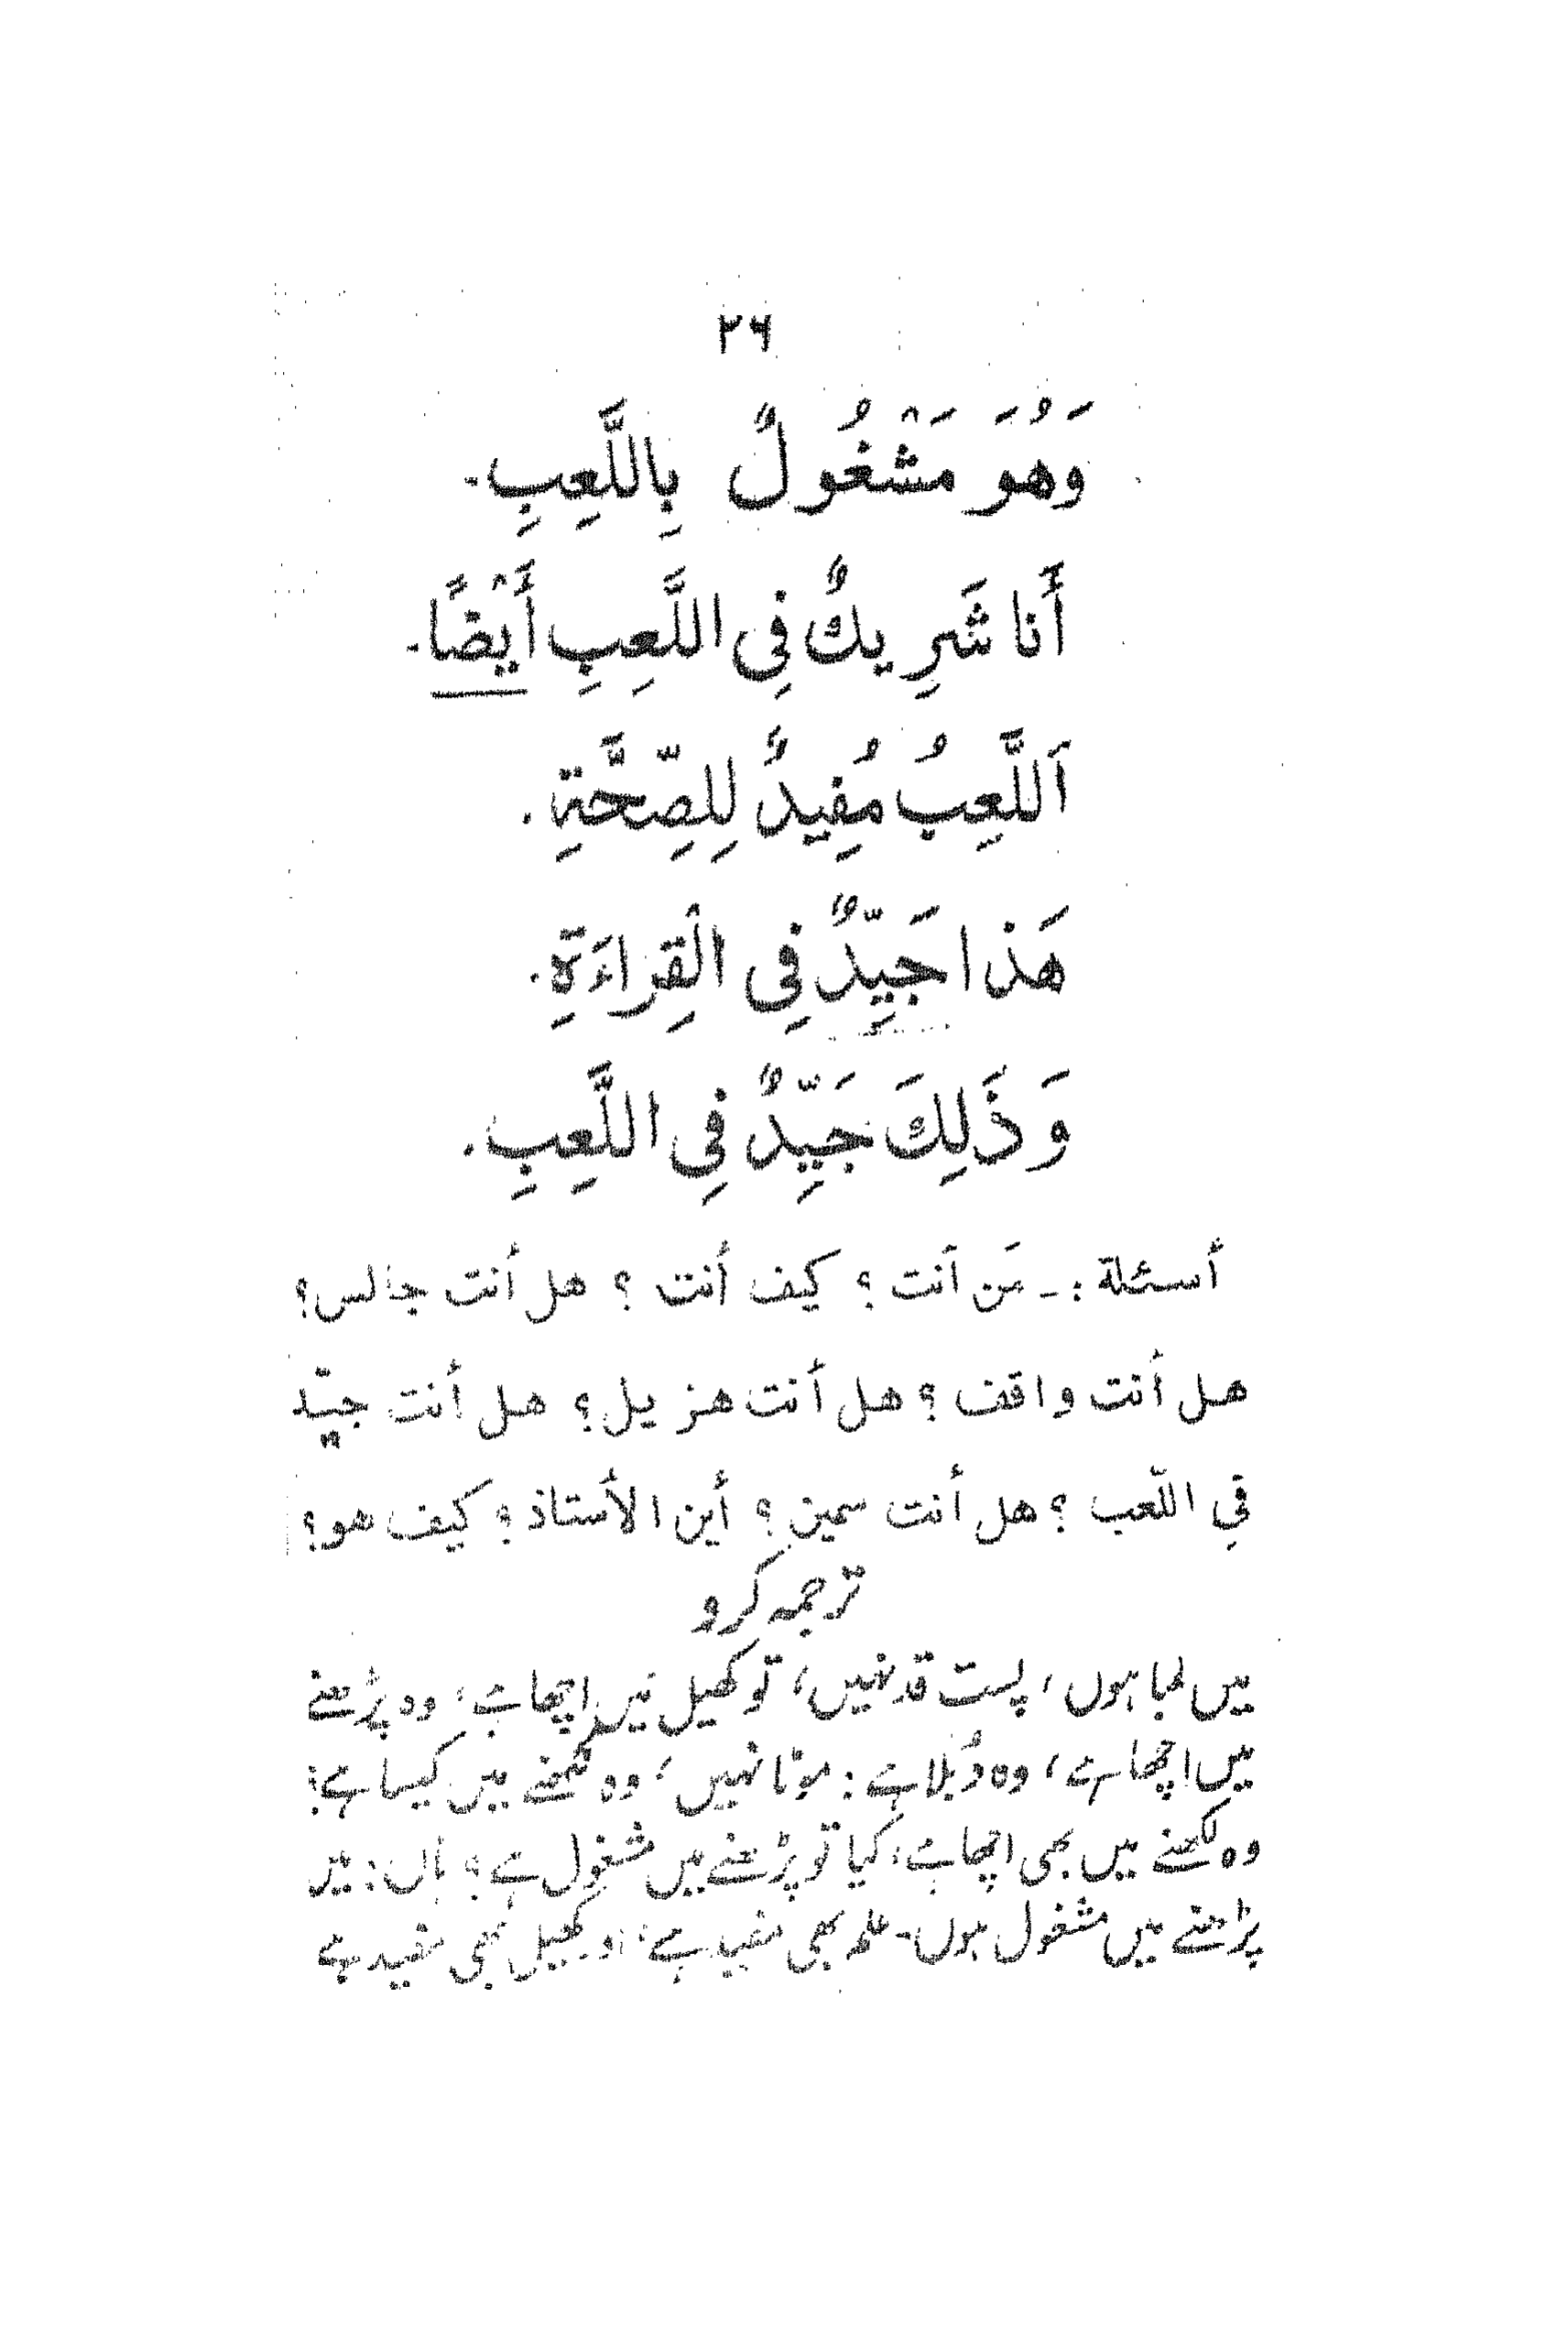 ۲۶
وَهُوَ مَشْغُولٌ بِاللَّعِبِ۔
أَنا شَرِيكٌ فِی اللَّعِبِ أَيْضًا۔
اَللَّعِبُ مُفِيدٌ لِلصِّحَّةِ.
هَذا جَيِّدٌ فِی الْقِرَاءَةِ.
وَ ذَلِكَ جَيِّدٌ فِی اللَّعِبِ.
أسئلة :ـ مَن أنت ؟ كيف أنت ؟ هل أنت جالس؟
هل أنت واقف ؟ هل أنت هزيل؟ هل أنت جيّد
في اللّعب ؟ هل أنت سمين ؟ أين الأستاذ ؟ كيف هو؟
ترجمہ کرو
میں لمبا ہوں ، پست قد نہیں، تو کھیل میں اچھا ہے، وہ پڑھنے
میں اچھا ہے ، وہ دُبلا ہے : موٹا نہیں ، وہ لکھنے میں کیسا ہے؟
وہ لکھنے میں بھی اچھا ہے، کیا تو پڑھنے میں مشغول ہے؟ ہاں : میں
پڑھنے میں مشغول ہوں۔ علم بھی مفید ہے، اور کھیل بھی مفید ہے